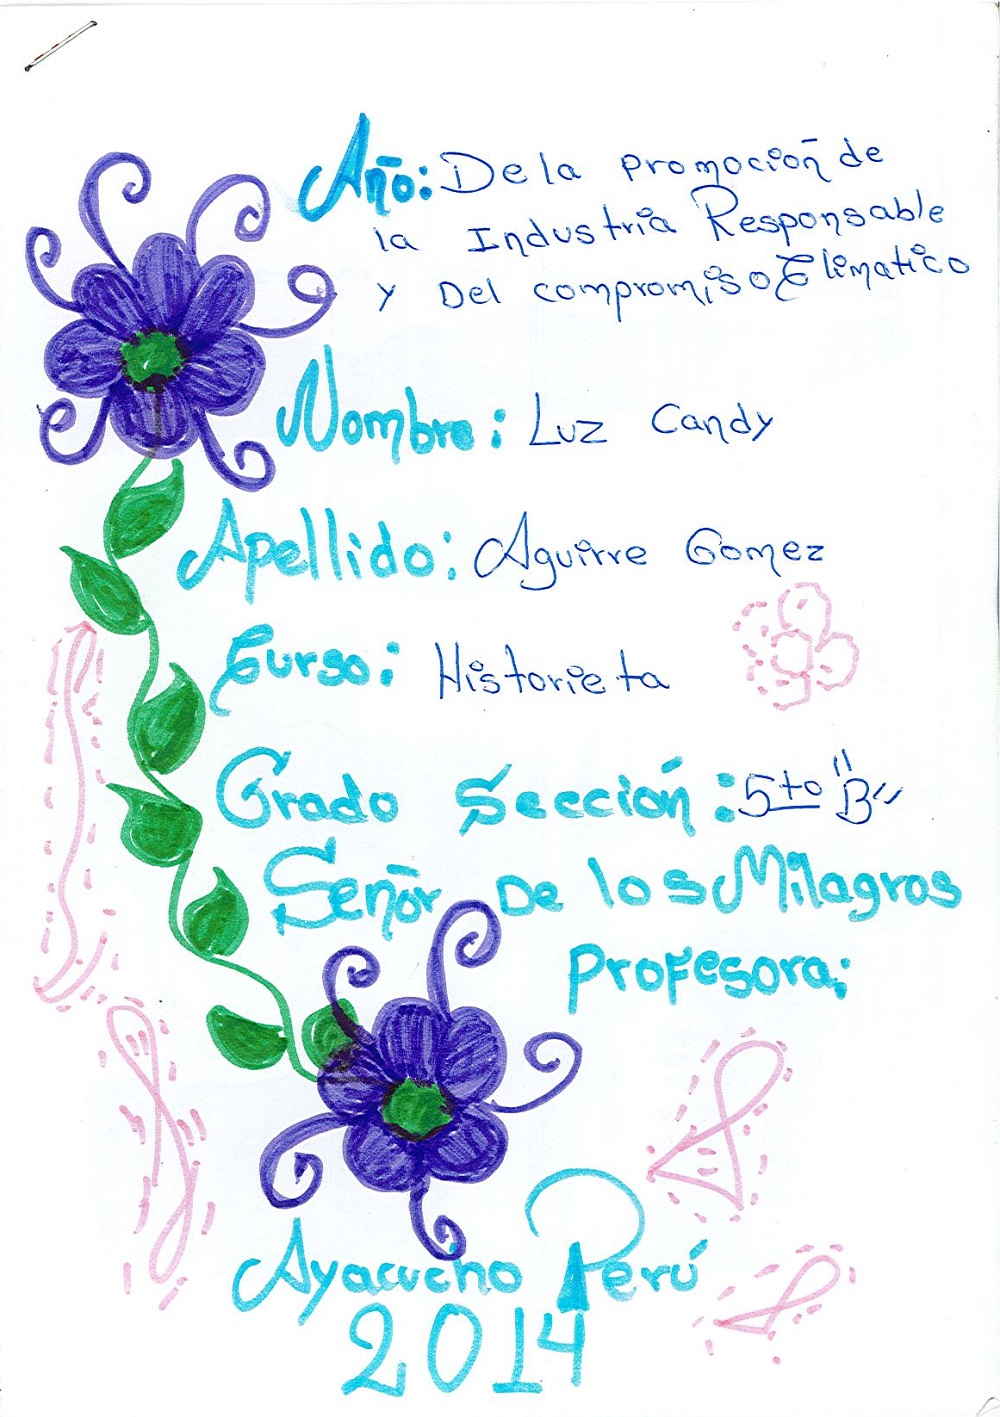 Año: De la promoción de
la Industria Responsable
y Del compromiso Climatico
Nombre: Luz Candy
Apellido: Aguirre Gomez
Curso: Historieta
Grado Sección: 5to "B"
Señor De los Milagros
Profesora:
Ayacucho Perú
2014